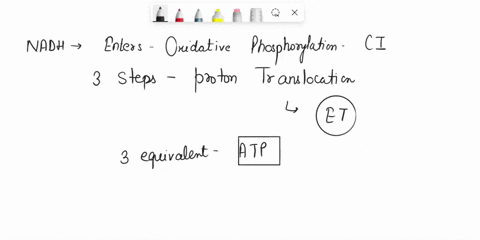 NADH → Enters - Oxidative Phosphorylation. CI
3 Steps - proton Translocation
↳ ET
3 equivalent - ATP